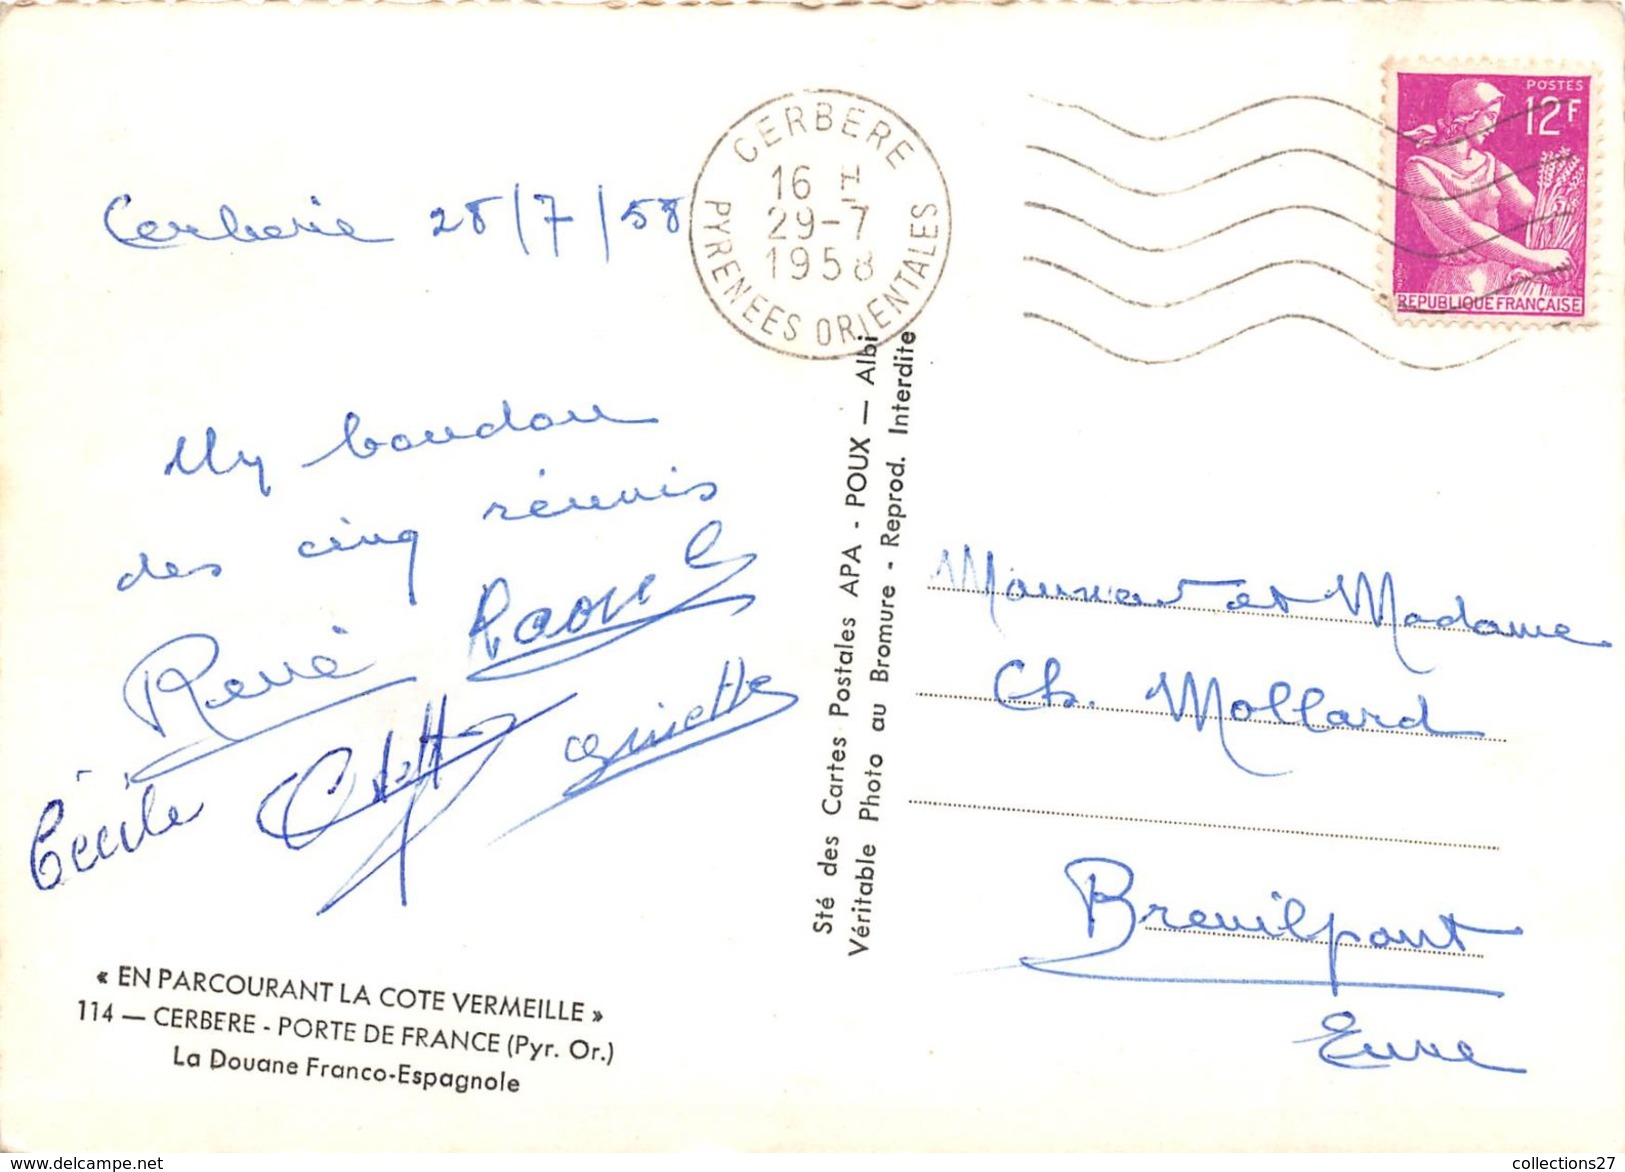 Cerbère 28/7/58
CERBERE
16 H
29-7
1958
PYRENEES ORIENTALES
POSTES
12F
REPUBLIQUE FRANÇAISE
Un
des cinq réunis
René Raoul
Cécile Odette Ginette
« EN PARCOURANT LA COTE VERMEILLE »
114 — CERBERE - PORTE DE FRANCE (Pyr. Or.)
La Douane Franco-Espagnole
Sté des Cartes Postales APA - POUX — Albi
Véritable Photo au Bromure - Reprod. Interdite
Monsieur et Madame
Ch. Mollard
Breuilpont
Eure
collections27